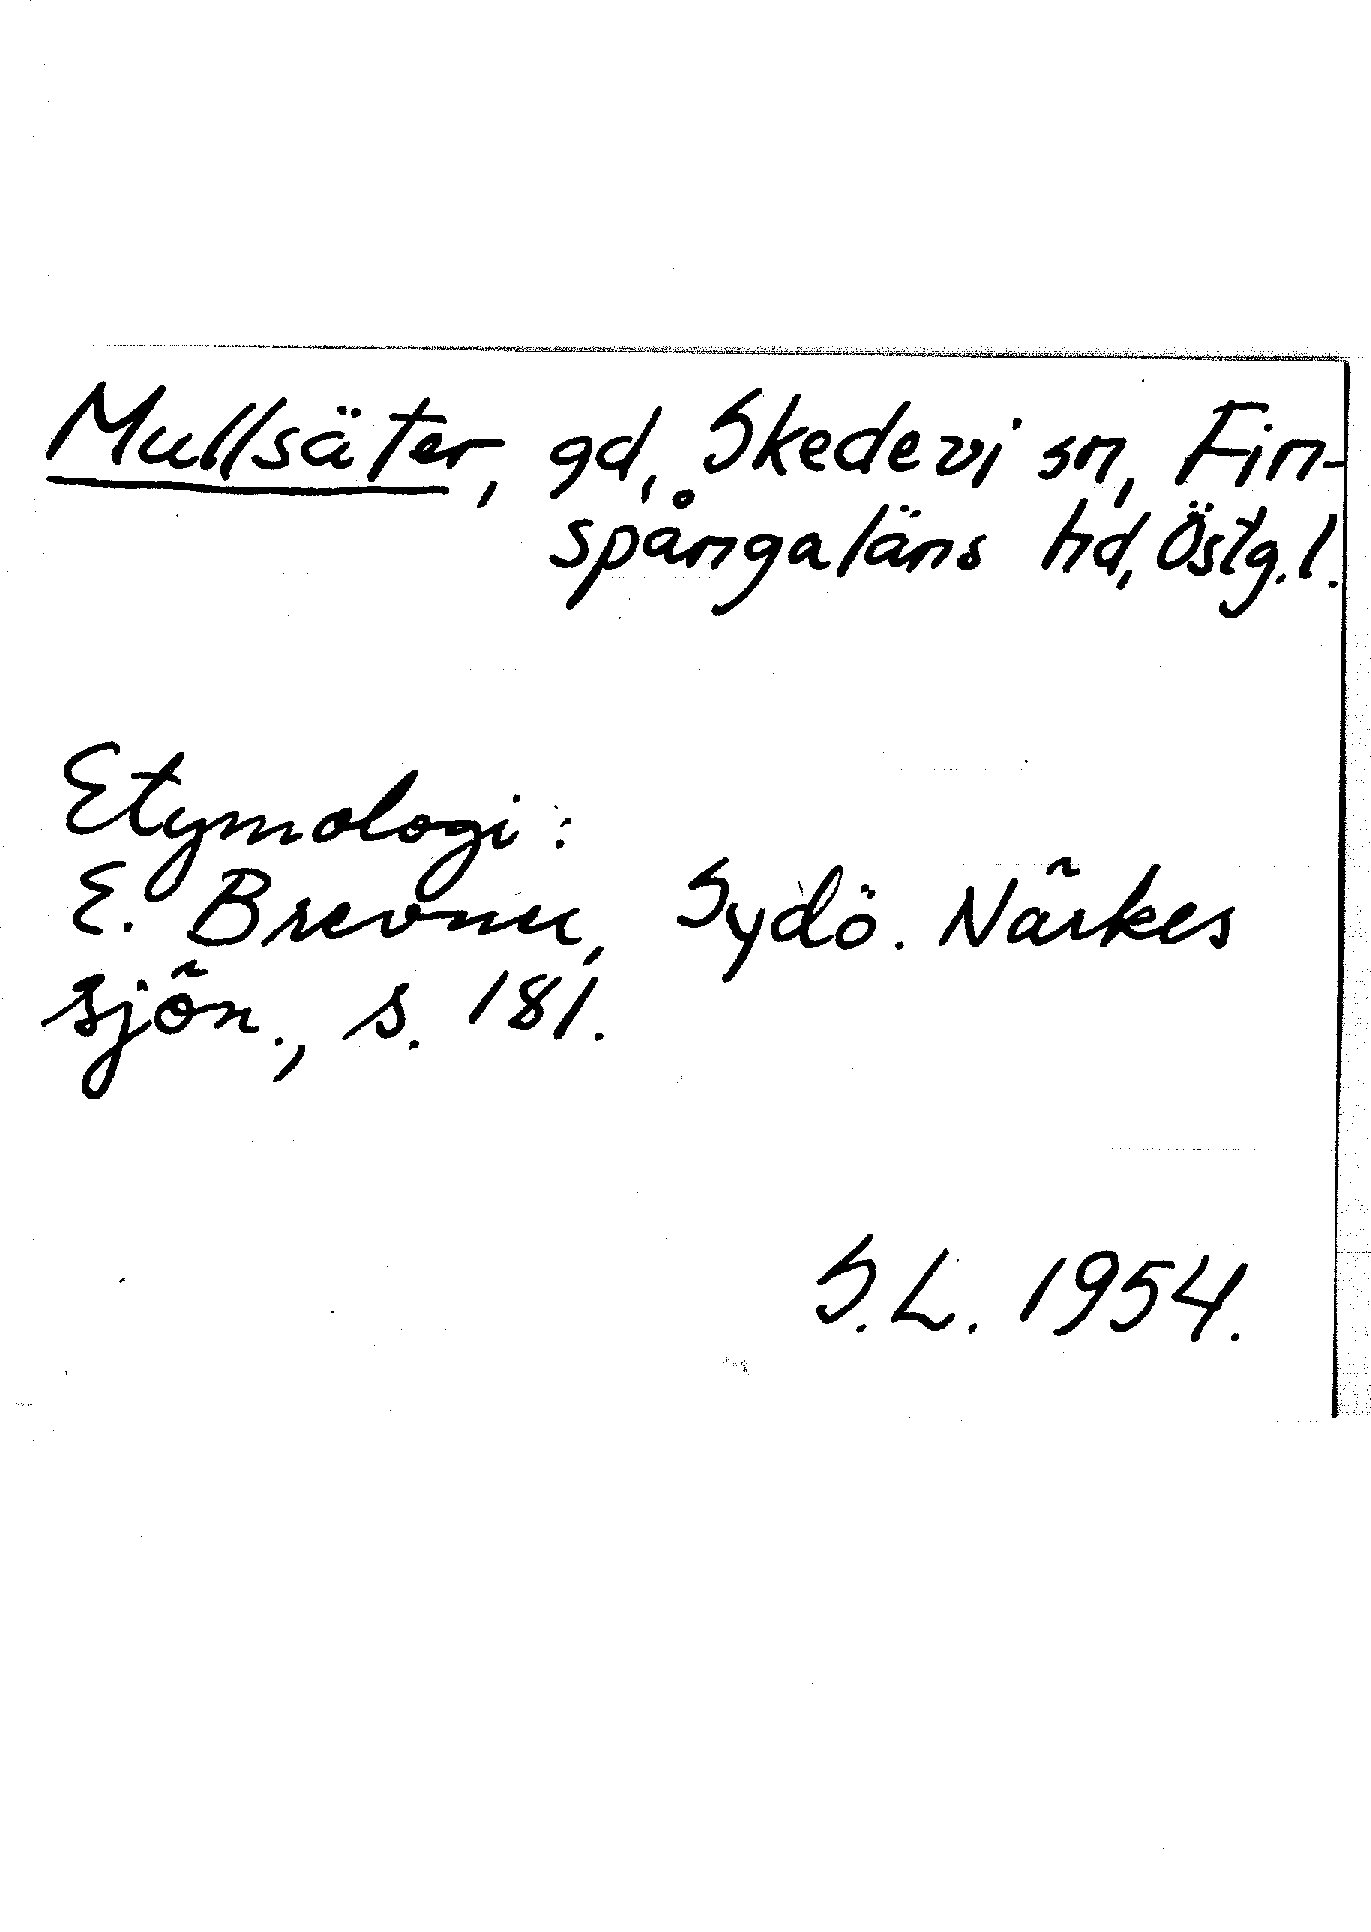 Mullsäter, gd, Skedevi sn, Fin-
spångaläns hd, Östg.l.
Etymologi:
E. Brevner, Sydö. Närkes
sjön., s. 181.
S.L. 1954.